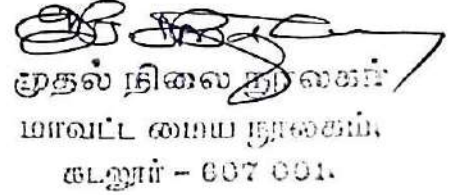 முதல் நிலை நூலகர்
மாவட்ட மைய நூலகம்,
கடலூர் – 607 001.